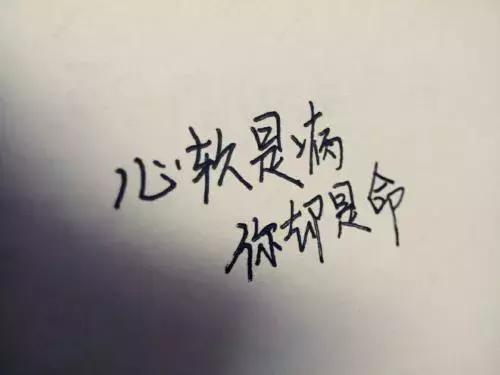 心软是病
你却是命